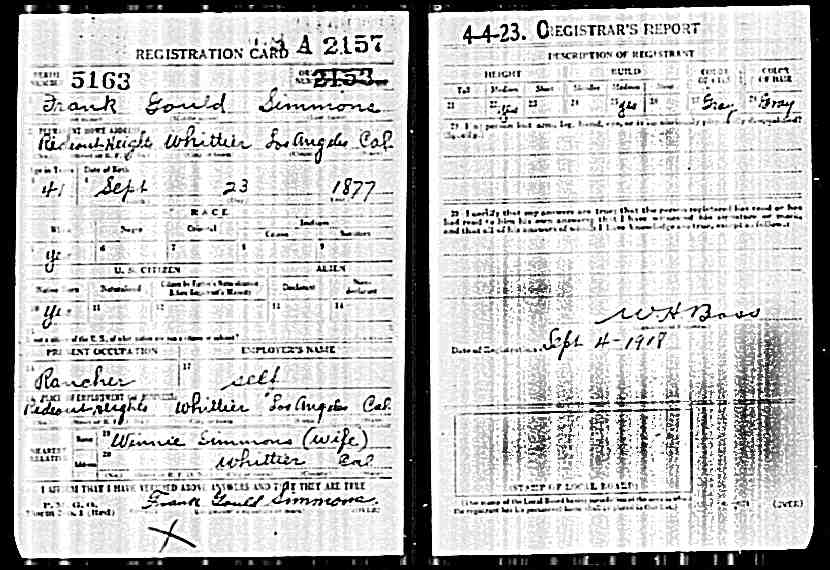 REGISTRATION CARD A 2157
NUMBER 5163 2153
Frank Gould Simmons
PERMANENT HOME ADDRESS
Rideout Heights Whittier Los Angeles Cal.
Age in Years Date of Birth
41 Sept 23 1877
RACE
White Negro Oriental Indian
Citizen
5 6 7 8 9
yes
U. S. CITIZEN ALIEN
Native Born Naturalized Declarant
10 yes 11 12 13 14
PRESENT OCCUPATION EMPLOYER'S NAME
Rancher 17 self
Rideout Heights Whittier Los Angeles Cal.
NEAREST RELATIVE
Name 19 Winnie Simmons (wife)
Address 20 Whittier Cal
I AFFIRM THAT I HAVE VERIFIED ABOVE ANSWERS AND THAT THEY ARE TRUE
P. M. G. O.
Form No. 1 (Red) Frank Gould Simmons
X
4-4-23. C REGISTRAR'S REPORT
DESCRIPTION OF REGISTRANT
HEIGHT BUILD COLOR OF EYES COLOR OF HAIR
Tall Medium Short Slender Medium Stout
21 22 yes 23 24 25 yes 26 27 Gray 28 Gray
30 I certify that my answers are true; that the person registered has read or has
had read to him his own answers; that I have witnessed his signature or mark,
and that all of his answers of which I have knowledge are true, except as follows:
Date of Registration Sept 4-1918
(STAMP OF LOCAL BOARD)
(The stamp of the Local Board having jurisdiction of the area in which
the registrant has his permanent home shall be placed in this box.)
(OVER)